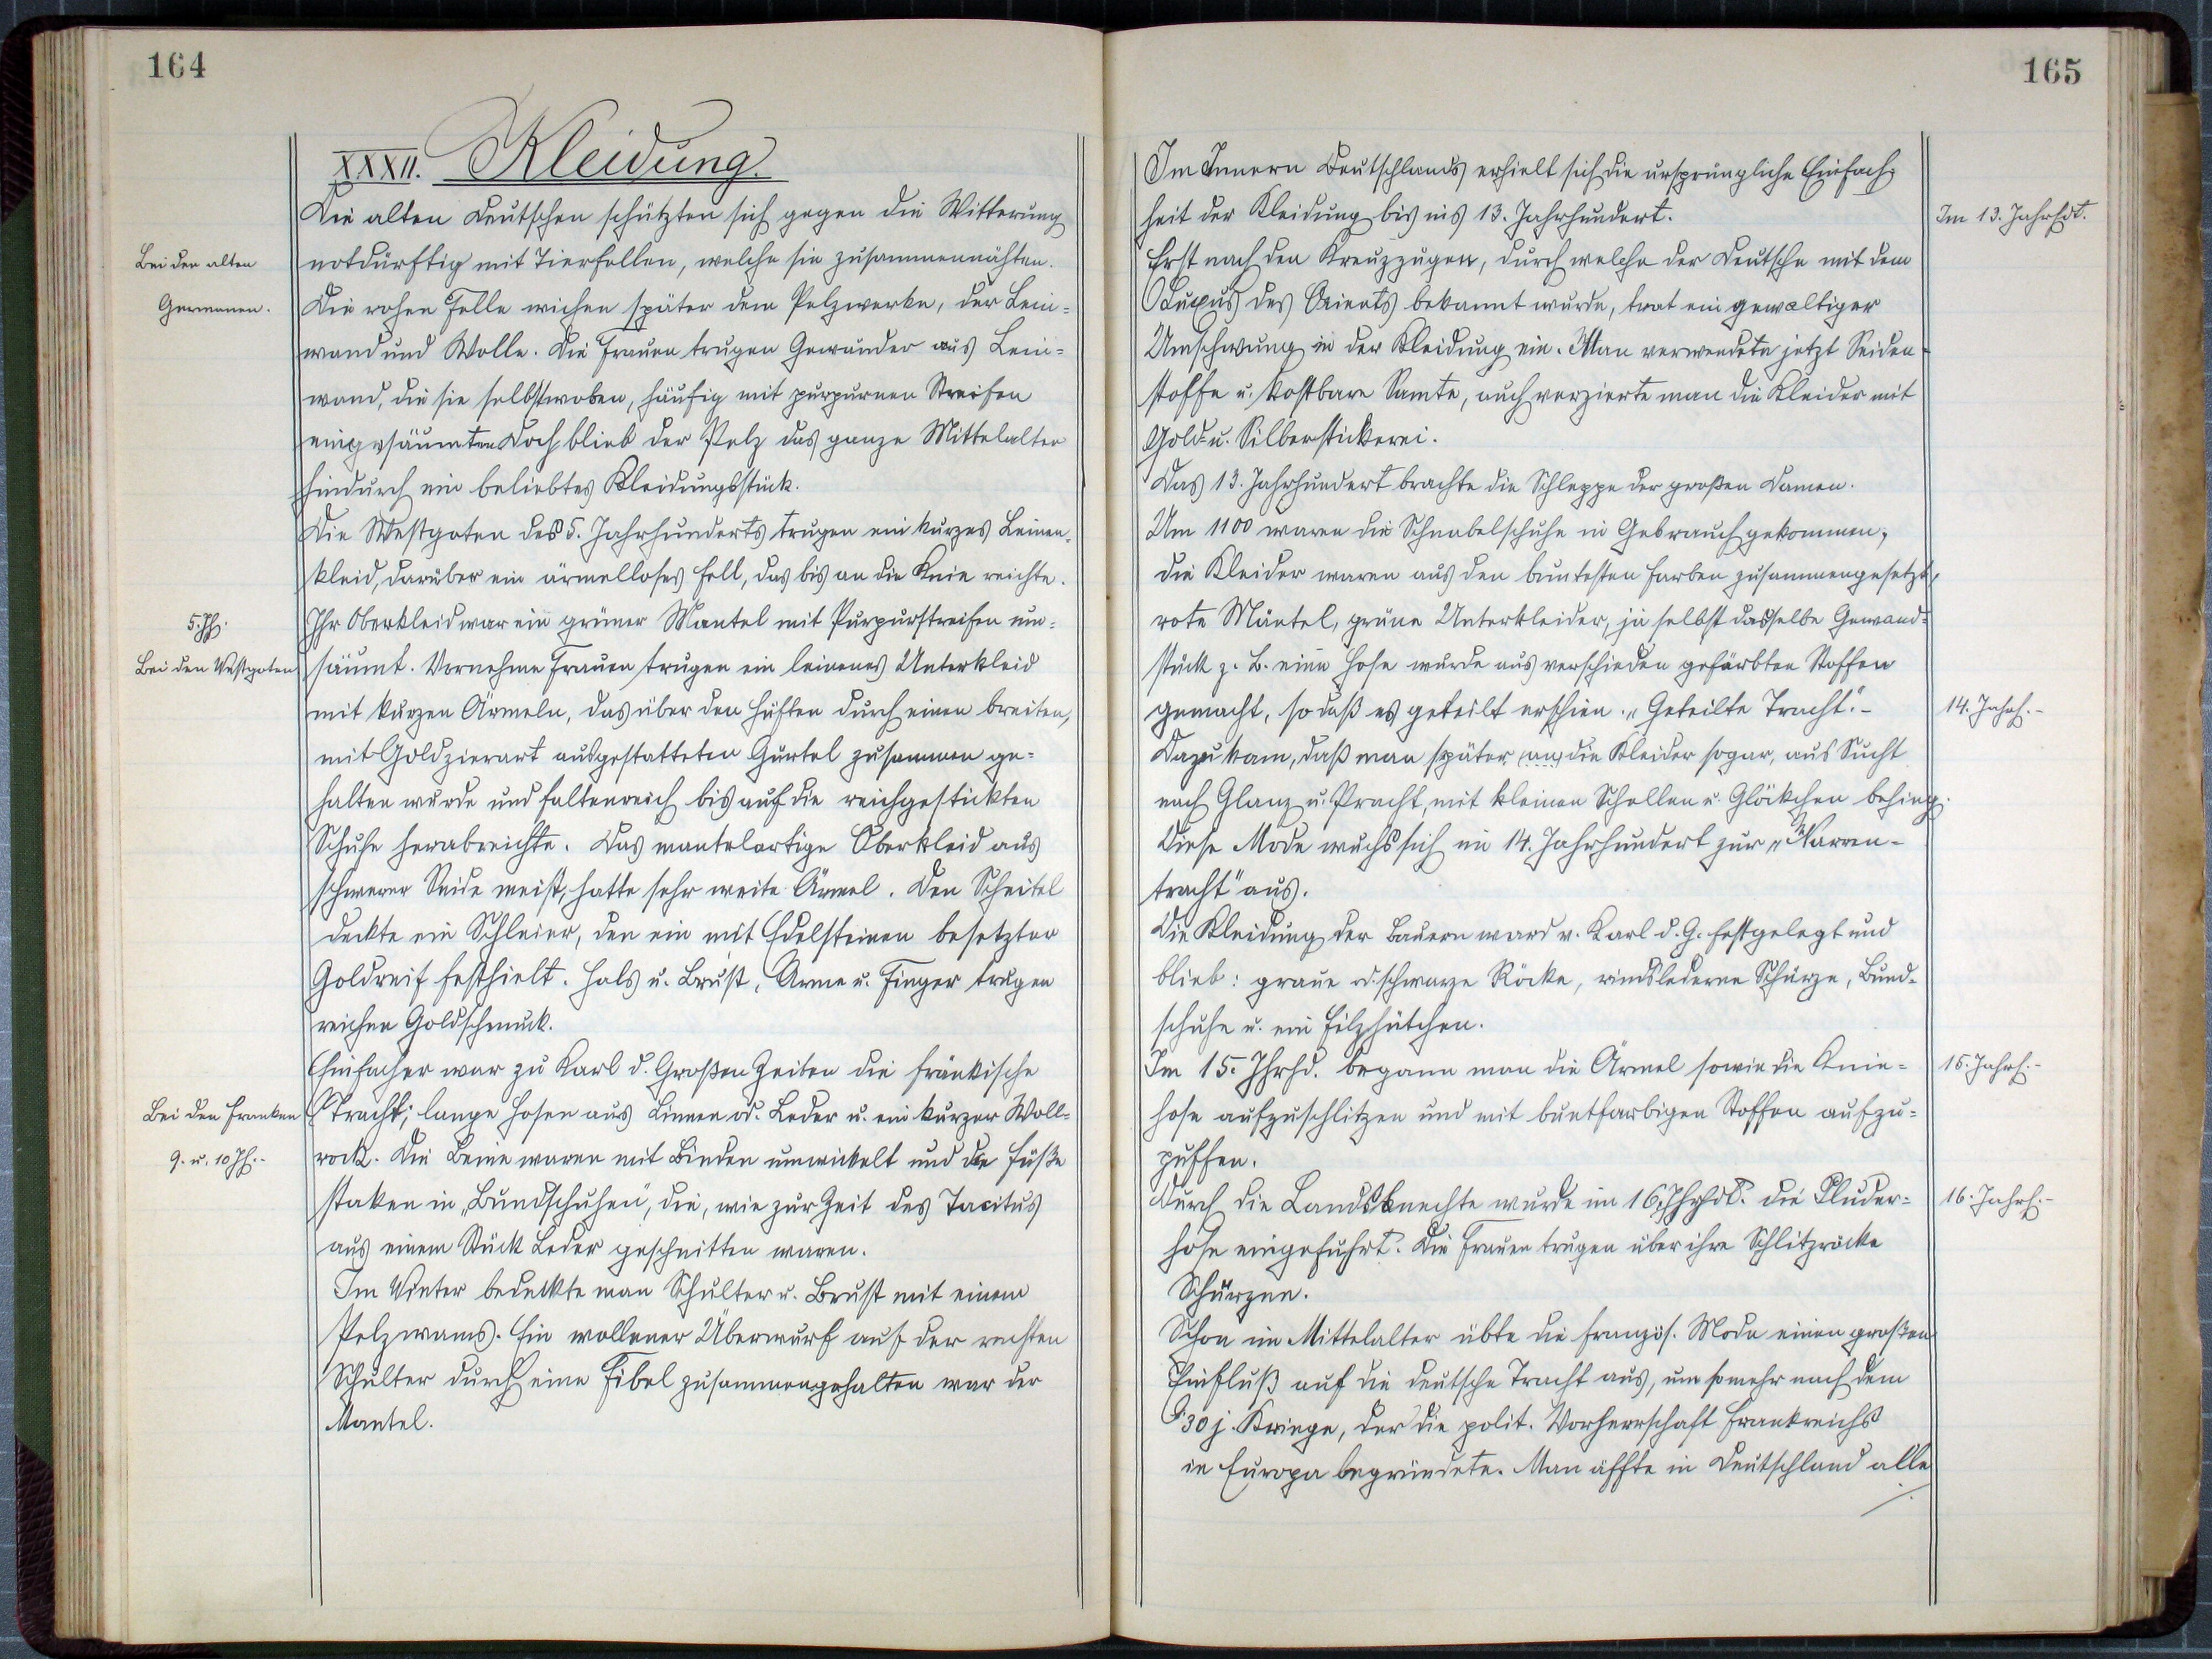 164
XXXII. Kleidung.
Die alten Deutschen schützten sich gegen die Witterung
Bei den alten
notdürftig mit Tierfellen, welche sie zusammennähten.
Germanen.
Die rohen Felle wichen später dem Pelzwerke, der Lein-
wand und Wolle. Die Frauen trugen Gewänder aus Lein-
wand, die sie selbst woben, häufig mit purpurnen Streifen
eingesäumten. Doch blieb der Pelz das ganze Mittelalter
hindurch ein beliebtes Kleidungsstück.
Die Westgoten des 5. Jahrhunderts trugen ein kurzes Leinen-
kleid, darüber ein ärmelloses Fell, das bis an die Knie reichte.
5. Jh.
Ihr Oberkleid war ein grüner Mantel mit Purpurstreifen um-
Bei den Westgoten
säumt. Vornehme Frauen trugen ein leinenes Unterkleid
mit kurzen Ärmeln, das über den Hüften durch einen breiten,
mit Goldzierart ausgestatteten Gürtel zusammen ge-
halten wurde und faltenreich bis auf die reichgestickten
Schuhe herabreichte. Das mantelartige Oberkleid aus
schwerer Seide meist, hatte sehr weite Ärmel. Den Scheitel
deckte ein Schleier, den ein mit Edelsteinen besetzter
Goldreif festhielt. Hals u. Brust, Arme u. Finger trugen
reichen Goldschmuck.
Einfacher war zu Karl d. Großen Zeiten die fränkische
Bei den Franken
Tracht; lange Hosen aus Linnen od. Leder u. ein kurzer Woll-
9. u. 10 Jh.-
rock. Die Beine waren mit Binden umwickelt und die Füße
staken in „Bundschuhen“, die, wie zur Zeit des Tacitus
aus einem Stück Leder geschnitten waren.
Im Winter bedeckte man Schulter u. Brust mit einem
Pelzwams. Ein wollener Überwurf auf der rechten
Schulter durch eine Fibel zusammengehalten war der
Mantel.
165
Im Innern Deutschlands erhielt sich die ursprüngliche Einfach-
heit der Kleidung bis ins 13. Jahrhundert.
Im 13. Jahrhdt.
Erst nach den Kreuzzügen, durch welche der Deutsche mit dem
Luxus des Orients bekannt wurde, trat ein gewaltiger
Umschwung in der Kleidung ein. Man verwendete jetzt Seiden-
stoffe u. kostbare Samte, auch verzierte man die Kleider mit
Gold- u. Silberstickerei.
Das 13. Jahrhundert brachte die Schleppe der großen Damen.
Um 1100 waren die Schnabelschuhe in Gebrauch gekommen,
die Kleider waren aus den buntesten Farben zusammengesetzt,
rote Mäntel, grüne Unterkleider, ja selbst dasselbe Gewand-
stück z. B. eine Hose wurde aus verschieden gefärbten Stoffen
gemacht, so daß es geteilt erschien. „Geteilte Tracht“.-
14. Jahrh.-
Dazu kam, daß man später an die Kleider sogar, aus Sucht
nach Glanz u. Pracht, mit kleinen Schellen u. Glöckchen behing.
Diese Mode wuchs sich im 14. Jahrhundert zur „Narren-
tracht“ aus.
Die Kleidung der Bauern ward v. Karl d. G. festgelegt und
blieb: graue od. schwarze Röcke, rindslederne Schürze, Bund-
schuhe u. ein Filzhütchen.
Im 15. Jhrhd. begann man die Ärmel sowie die Knie-
15. Jahrh.-
hose aufzuschlitzen und mit buntfarbigen Stoffen aufzu-
puffen.
Durch die Landsknechte wurde im 16. Jhrhdt. die Pluder-
16. Jahrh.-
hose eingeführt. Die Frauen trugen über ihre Schlitzröcke
Schürzen.
Schon im Mittelalter übte die französ. Mode einen großen
Einfluß auf die deutsche Tracht aus, um somehr nach dem
30 j. Kriege, der die polit. Vorherrschaft Frankreichs
in Europa begründete. Man äffte in Deutschland alle